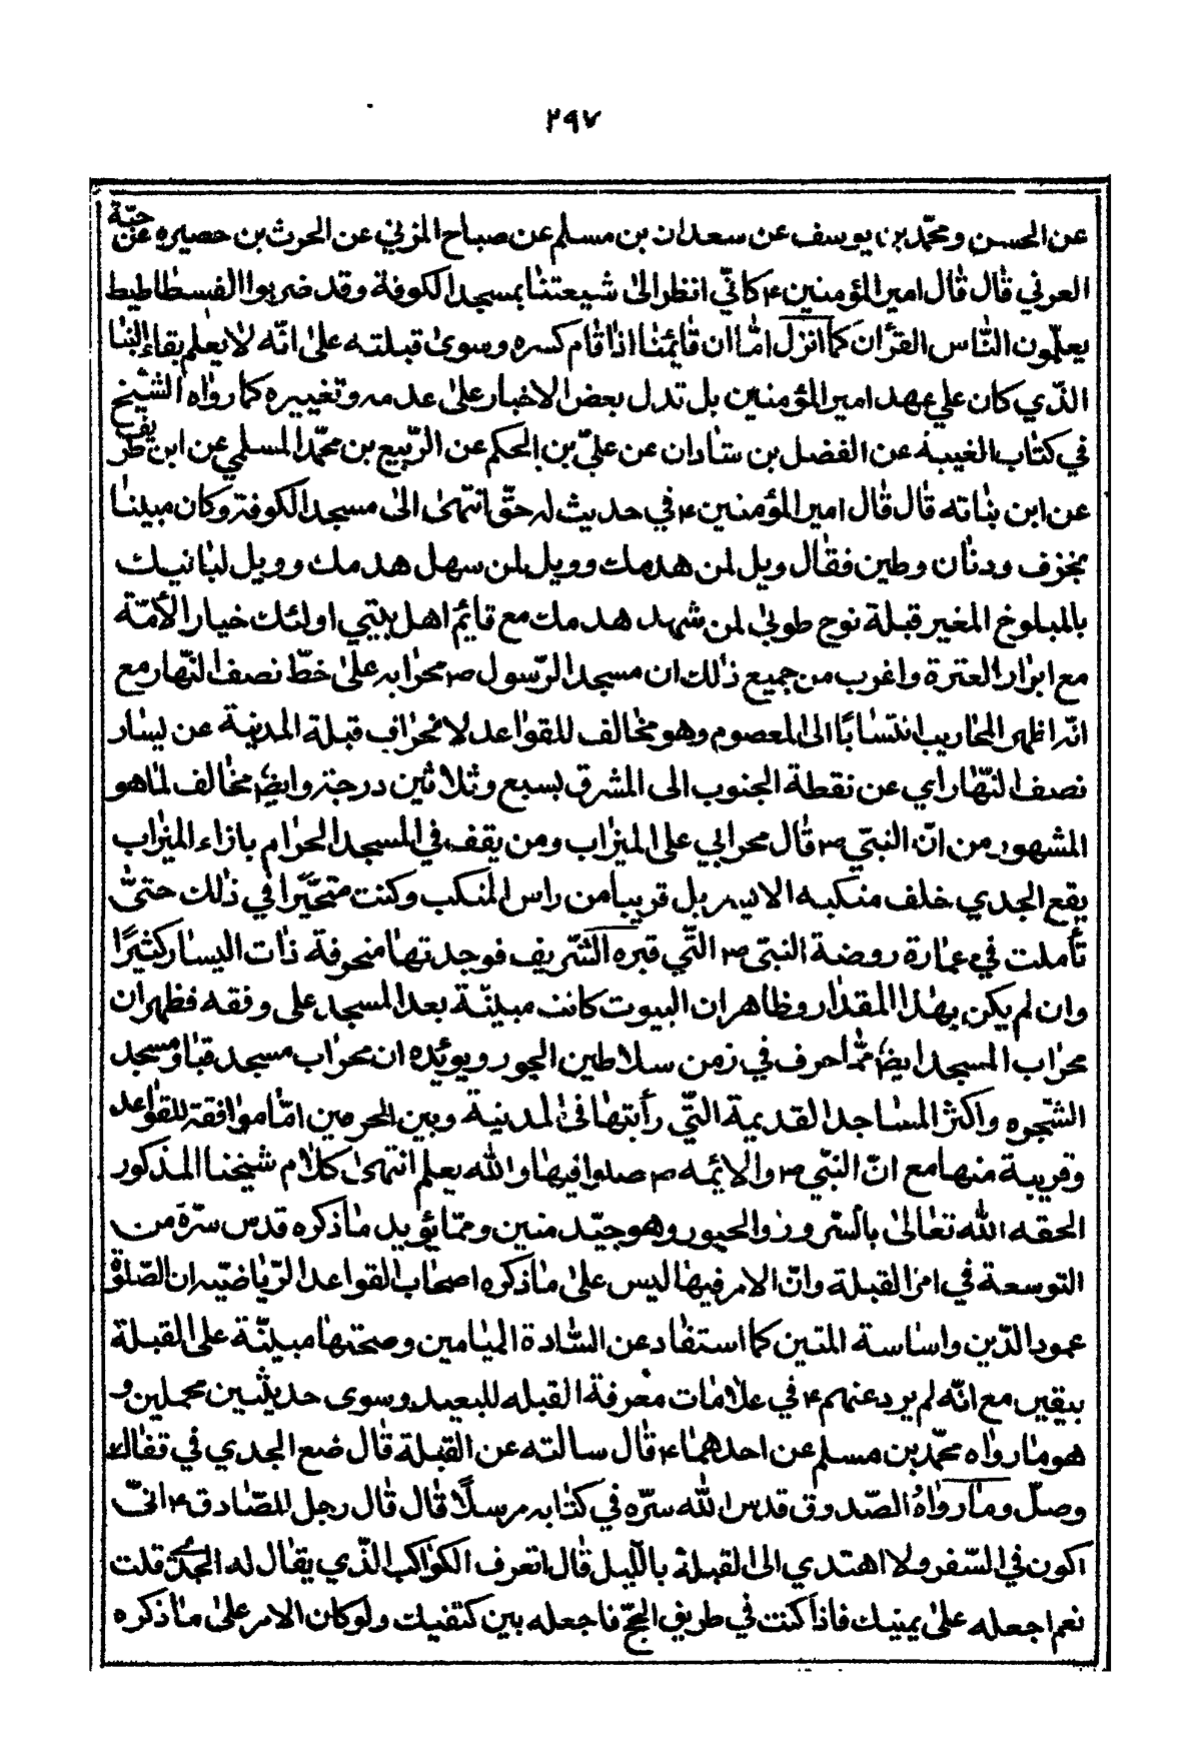 ٢٩٧
عن الحسن ومحمّد بن يوسف عن سعدان بن مسلم عن صباح المزني عن الحرث بن حصيره عن حبّة
العرني قال قال امير المؤمنين ع كانّي انظر الى شيعتنا بمسجد الكوفة وقد ضربوا الفسطاطيط
يعلّمون النّاس القرآن كما انزل امّا ان قائمنا اذا قام كسره وسوى قبلته على انّه لا يعلم بقاء البنا
الذّي كان على عهد امير المؤمنين بل تدل بعض الاخبار على عدمه وتغييره كما رواه الشّيخ
في كتاب الغيبة عن الفضل بن شاذان عن عليّ بن الحكم عن الرّبيع بن محمّد المسلمي عن ابن طريف
عن ابن بناته قال قال امير المؤمنين ع في حديث له حتّى انتهى الى مسجد الكوفة وكان مبينا
بخزف ودنان وطين فقال ويل لمن هدمك وويل لمن سهل هدمك وويل لبانيك
بالمبلوخ المغير قبلة نوح طوبى لمن شهد هدمك مع قايم اهل بيتي اولئك خيار الأمّة
مع ابرار العترة واغرب من جميع ذلك ان مسجد الرّسول ص محرابه على خطّ نصف النّهار مع
انّه اظهر المحاريب انتسابًا الى المعصوم وهو مخالف للقواعد لانحراف قبلة المدينة عن يسار
نصف النّهار اي عن نقطة الجنوب الى المشرق بسبع وثلاثين درجة وايضً مخالف لما هو
المشهور من انّ النبيّ ص قال محرابي على الميزاب ومن يقف في المسجد الحرام بازاء الميزاب
يقع الجدي خلف منكبه الايسر بل قريبا من راس المنكب وكنت متحيّرًا في ذلك حتّى
تأملت في عمارة روضة النبيّ ص التّي قبره الشّريف فوجدتها منحرفة ذات اليسار كثيرًا
وان لم يكن بهذا المقدار وظاهر ان البيوت كانت مبينّة بعد المسجد على وفقه فظهر ان
محراب المسجد ايضً ممّا حرف في زمن سلاطين الجور ويويّده ان محراب مسجد قبا ومسجد
الشّجره واكثر المساجد القديمة التّي رأيتها في المدنية وبين الحرمين امّا موافقة للقواعد
وقريبة منها مع انّ النبّي ص والائمه ص صلوا فيها والله يعلم انتهى كلام شيخنا المذكور
الحقه الله تعالى بالسّرور والحبور وهو جيّد متين وممّا يؤيد ما ذكره قدس سرّه من
التوسعة في امر القبلة وانّ الامر فيها ليس على ما ذكره اصحاب القواعد الرّياضيّه ان الصّلوة
عمود الدّين واساسة المتين كما استفاد عن السّادة الميامين وصحتها مبينّة على القبلة
بيقين مع انّه لم يرد عنهم ع في علامات معرفة القبله للبعيد وسوى حديثين مجملين و
هو ما رواه محمّد بن مسلم عن احدهما ع قال سالته عن القبلة قال ضع الجدي في قفاك
وصلّ وما رواهُ الصّدوق قدس الله سرّه في كتابه مرسلًا قال قال رجل للصّادق ع انيّ
اكون في السّفر ولا اهتدي الى القبلة بالليل قال اتعرف الكواكب الذّي يقال له الجدي قلت
نعم اجعله على يمينك فاذا كنت في طريق الحجّ فاجعله بين كتفيك ولو كان الامر على ما ذكره